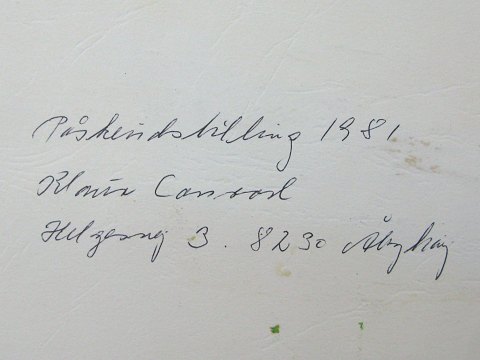 Påskeudstilling 1981
Klaus Conrad
Helgesvej 3. 8230 Åbyhøj